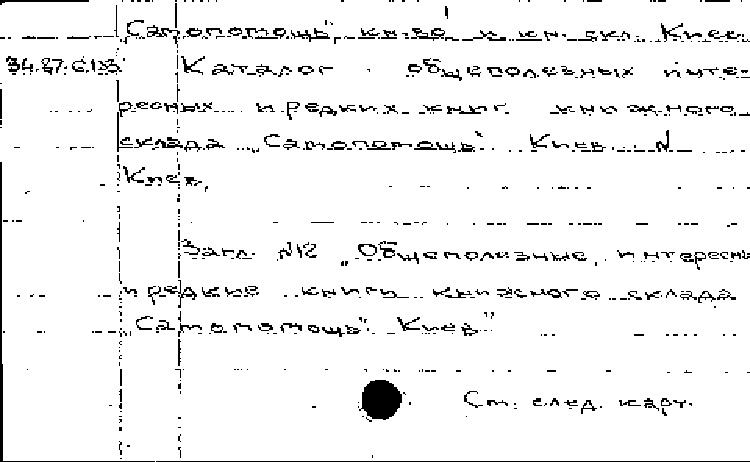 „Самопомощь", кн-во и кн. скл. Киев.
34.27.618 Каталог общеполезных инте-
ресных и редких книг книжного
склада „Самопомощь". Киев. N
Киев,
Загл. №12 „Общеполезные, интересн
и редкие книги книжного склада
„Самопомощь". Киев"
См. след. карт.